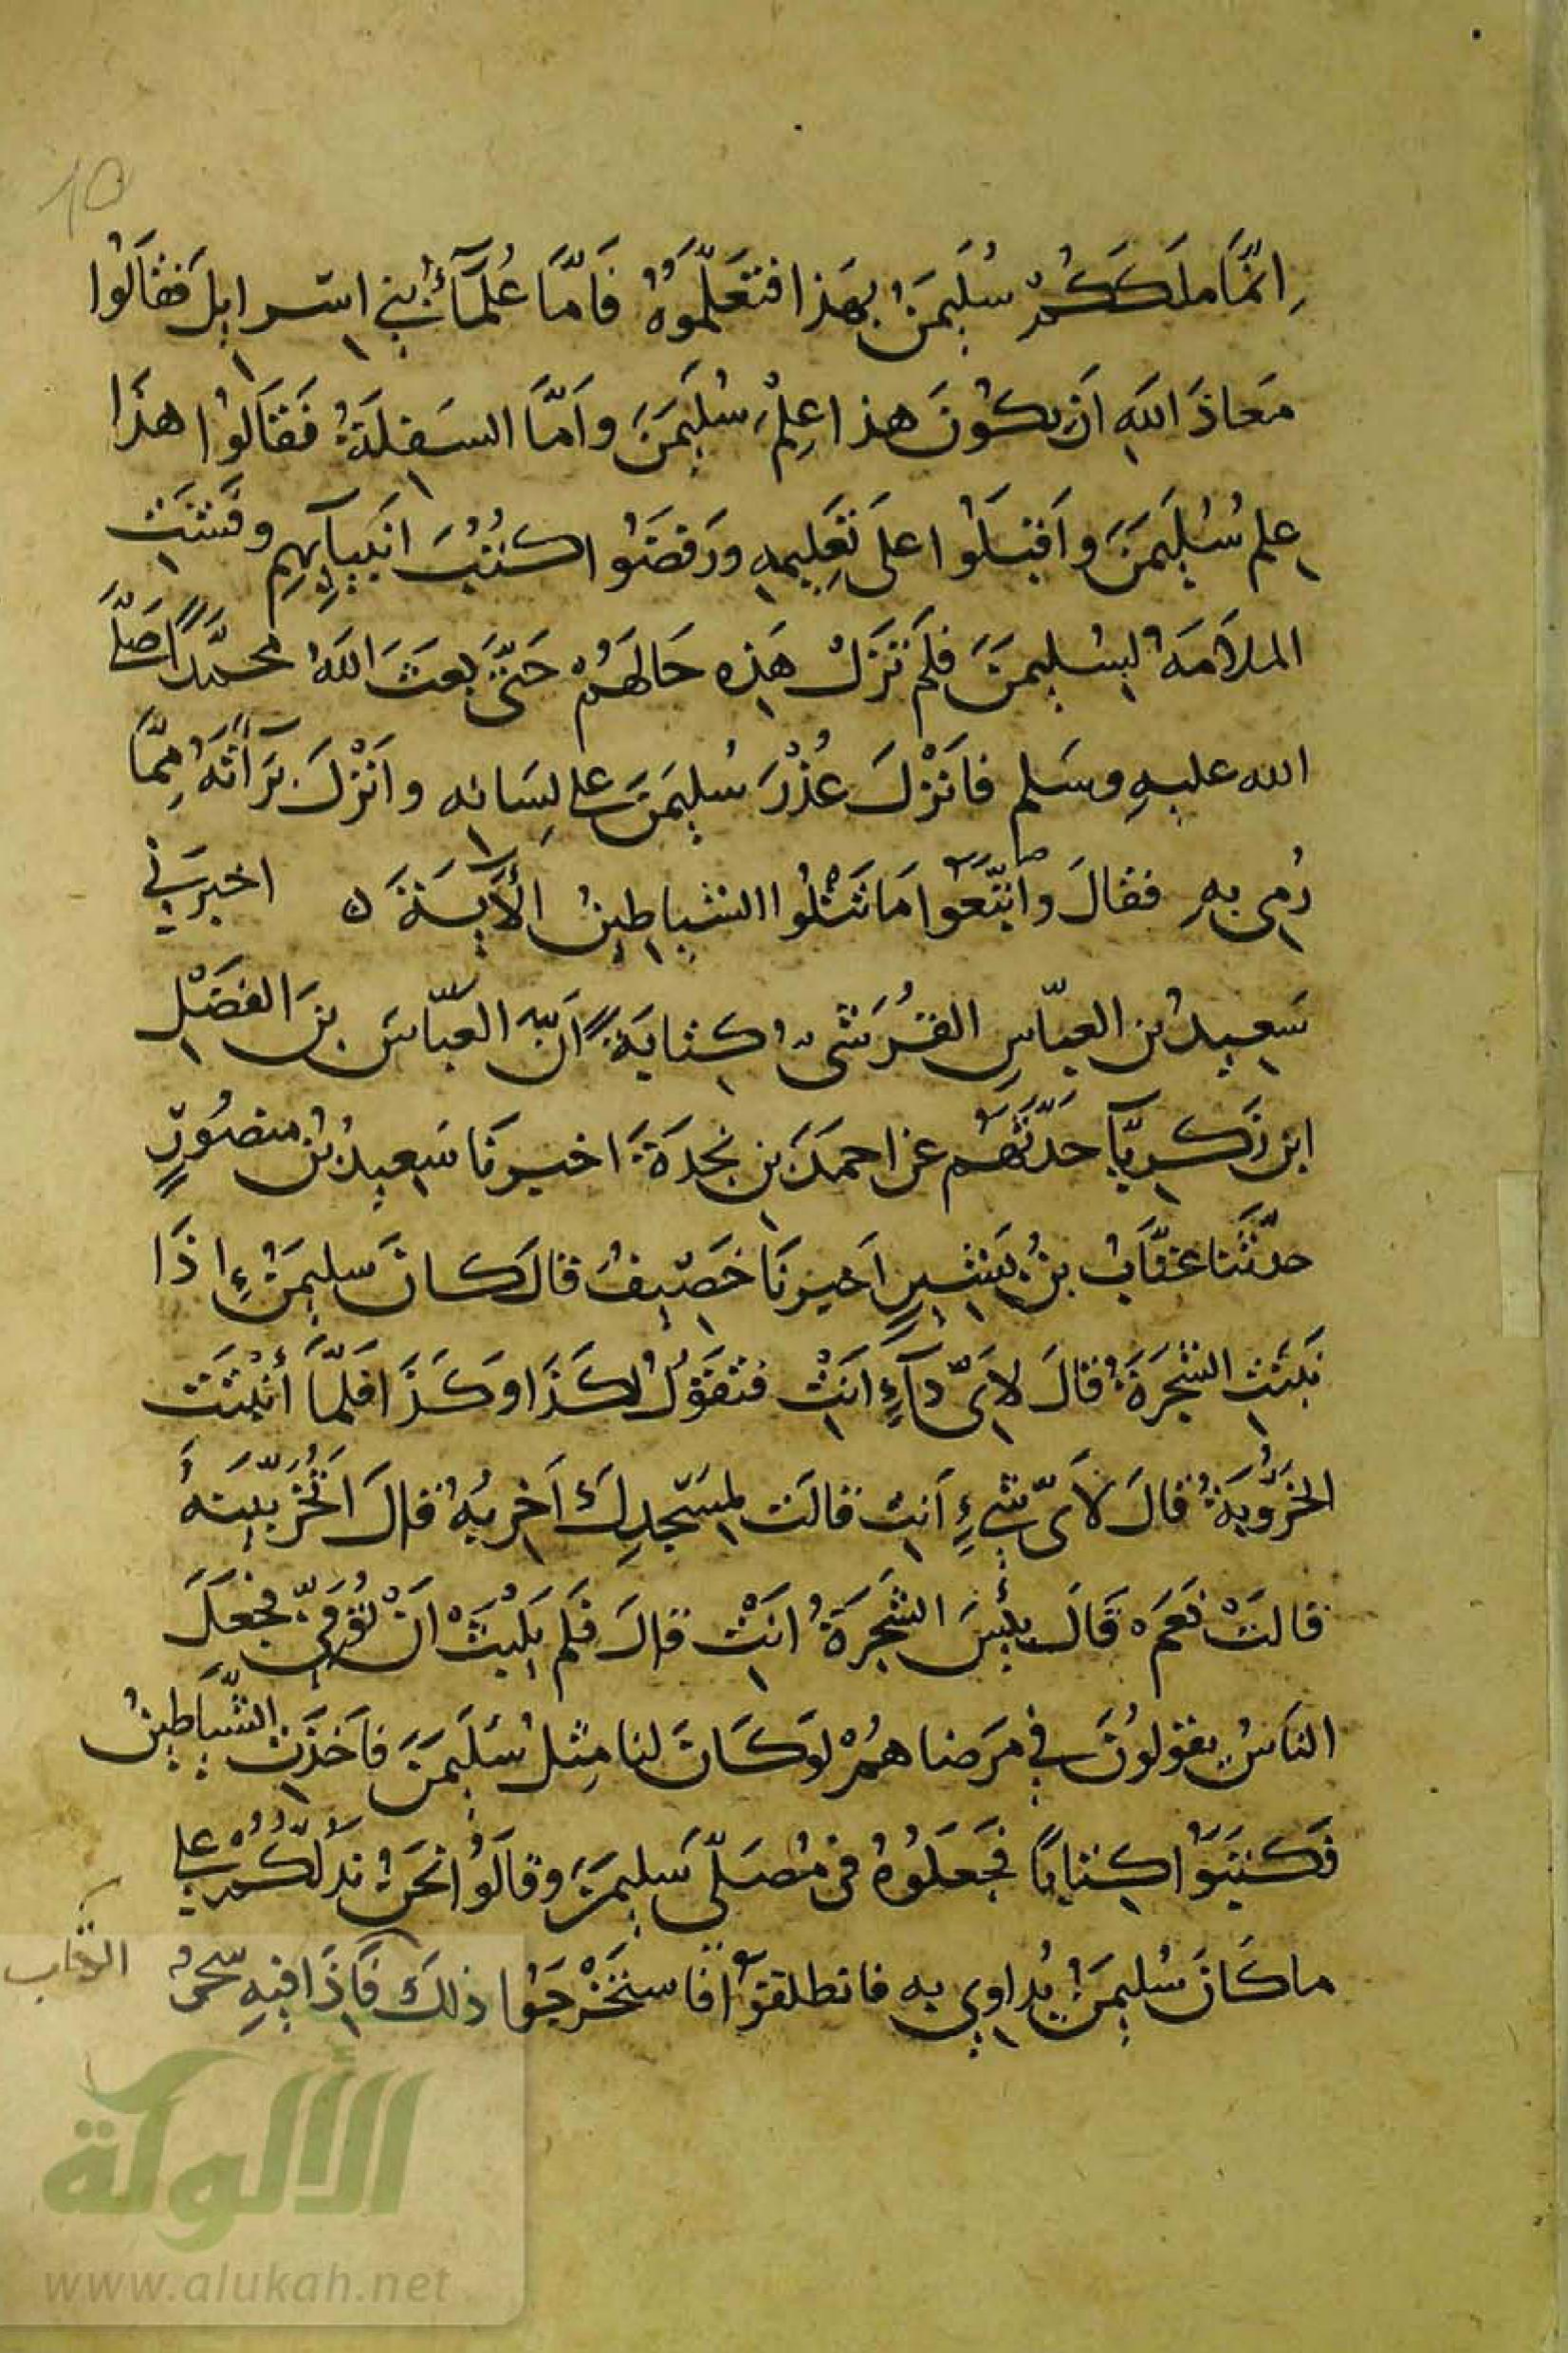 10
اِنَّمَا مَلَكَكُمْ سُلَيمَنُ بِهَذا فتعَلَّمُوهُ فَاَمَّا عُلَمَآءُ بَنِي اسرايلَ فَقَالُوا
مَعَاذَ اللهِ اَنْ يكُونَ هذا عِلمُ سُلَيمَنَ واَمَّا السَفِلَةُ فَقَالُوا هذَا
عِلم سُلَيمَنَ واَقبَلُوا على تَعَلِيمِهِ ورَفضُوا كُتُبَ انبِيآيِهِم وفَشَتِ
الملاَمَةُ لِسُليمنَ فلَم تَزَل هَذِه حَالهُمْ حَتَّى بَعثَ اللهُ محمّدًا صَلَّى
الله عليهِ وسَلم فاَنْزلَ عُذْرَ سُليمَنَ على لِسَانِه واَنْزلَ بَرَآتَهُ مِمَّا
رُمِي بِهِ فقالَ واتّبَعُوا مَا تَتْلُوا الشياطِينُ الأيَةَ ه اخبرَنِي
سَعِيدُ بن العبّاسِ القُرَشيُّ كِتابَةً اَنَّ العَبّاسَ بنَ الفَضْلِ
ابن زَكرِيَّآ حَدّثَهُم عن احمدَ بن نجدَةَ اخبرنَا سَعِيدُ بنُ منصُورٍ
حدّثَنا عتَّابُ بنُ بَشِيرٍ اَخبرنَا خَصِيفُ قالَ كانَ سليمَنُ اِذَا
نبَتَتِ الشجَرَةُ قالَ لاَيِّ دَآءٍ اَنتِ فتقُولُ لكَذَا وكَذَا فلَمَّا أنبتَت
الخَرّوبَةُ قالَ لأَيِّ شيءٍ اَنتِ قالَت لِمسَجدِكَ اُخرِبُهُ قال اَتُخَرِّبِينَهُ
قالَتْ نعَم ه قَالَ بِئسَ الشجَرَةُ انتِ قالَ فلَم يَلْبَثْ اَنْ تُوُفِّيَ فجعَلَ
الناسُ يقولونَ في مَرضاهمْ لو كَانَ لنا مِثلُ سُلَيمَنَ فاَخذَتِ الشَّياطِينُ
فكَتَبُوا كِتابًا فجَعَلُوهُ في مُصَلّى سُليمنَ وقالُوا نحَنُ نَدُلُّكُمْ على
ما كَانَ سُليمَنُ يُداوِي بِه فانطلقوُا فاستَخْرجُوا ذلكَ فَاِذَا فيهِ سِحرٌ
الألوكة
www.alukah.net